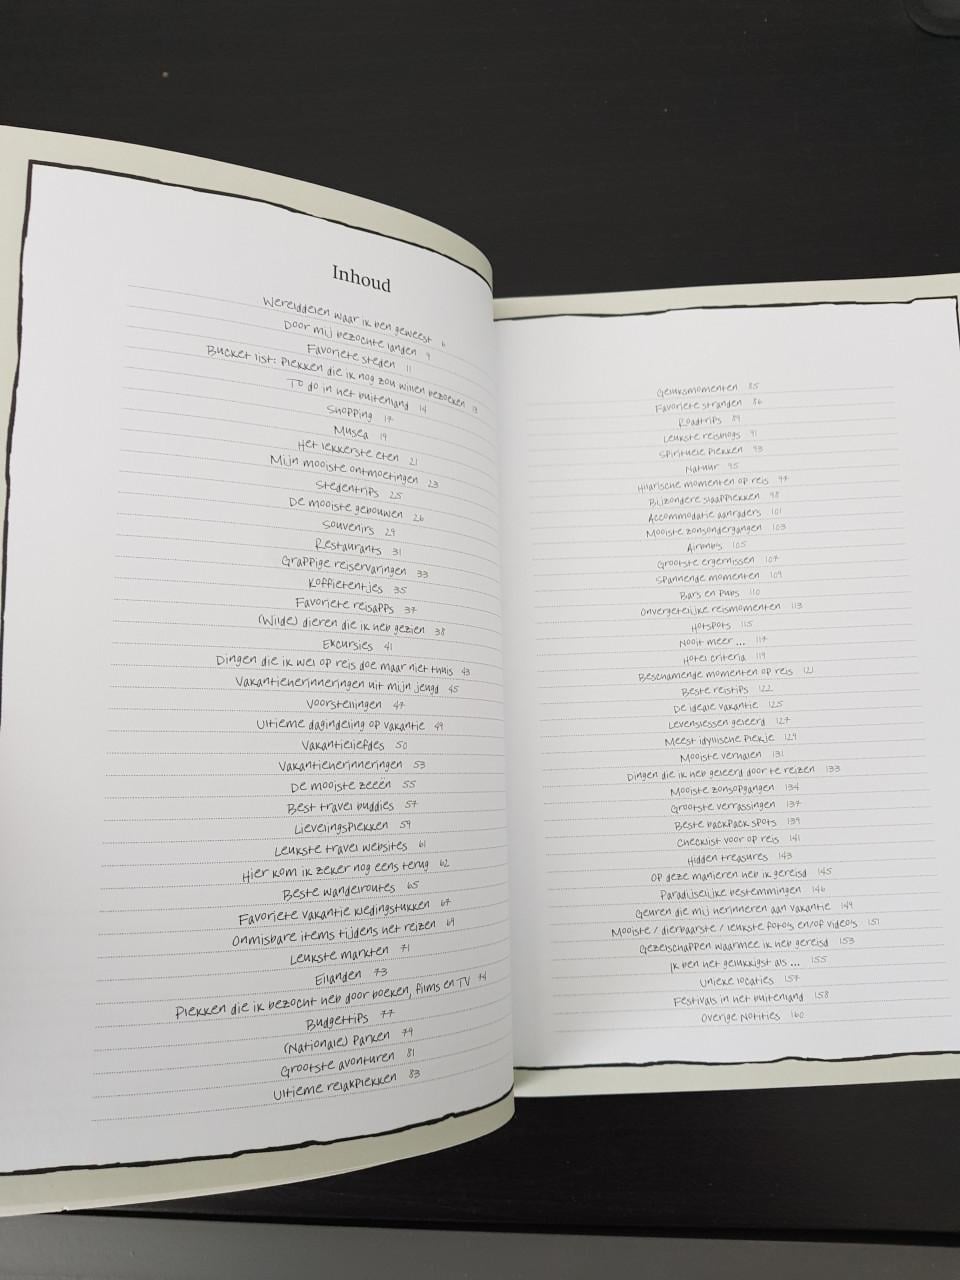 Inhoud
Werelddelen waar ik ben geweest 6
Door mij bezochte landen 9
Favoriete steden 11
Bucket list: Plekken die ik nog zou willen bezoeken 13
To do in het buitenland 14
Shopping 17
Musea 19
Het lekkerste eten 21
Mijn mooiste ontmoetingen 23
Stedentrips 25
De mooiste gebouwen 26
Souvenirs 29
Restaurants 31
Grappige reiservaringen 33
Koffietentjes 35
Favoriete reisapps 37
(Wilde) dieren die ik heb gezien 38
Excursies 41
Dingen die ik wel op reis doe maar niet thuis 43
Vakantieherinneringen uit mijn jeugd 45
Voorstellingen 47
Ultieme dagindeling op vakantie 49
Vakantieliefdes 50
Vakantieherinneringen 53
De mooiste zeeën 55
Best travel buddies 57
Lievelingsplekken 59
Leukste travel websites 61
Hier kom ik zeker nog eens terug 62
Beste wandelroutes 65
Favoriete vakantie kledingstukken 67
Onmisbare items tijdens het reizen 69
Leukste markten 71
Eilanden 73
Plekken die ik bezocht heb door boeken, films en TV 74
Budgettips 77
(Nationale) Parken 79
Grootste avonturen 81
Ultieme relaxplekken 83
Geluksmomenten 85
Favoriete stranden 86
Roadtrips 89
Leukste reisblogs 91
Spirituele plekken 93
Natuur 95
Hilarische momenten op reis 97
Bijzondere slaapplekken 98
Accommodatie aanraders 101
Mooiste zonsondergangen 103
Airbnb's 105
Grootste ergernissen 107
Spannende momenten 109
Bars en Pubs 110
Onvergetelijke reismomenten 113
Hotspots 115
Nooit meer ... 117
Hotel criteria 119
Beschamende momenten op reis 121
Beste reistips 122
De ideale vakantie 125
Levenslessen geleerd 127
Meest idyllische plekje 129
Mooiste verhalen 131
Dingen die ik heb geleerd door te reizen 133
Mooiste zonsopgangen 134
Grootste verrassingen 137
Beste backpack spots 139
Checklist voor op reis 141
Hidden treasures 143
Op deze manieren heb ik gereisd 145
Paradijselijke bestemmingen 146
Geuren die mij herinneren aan vakantie 149
Mooiste / dierbaarste / leukste foto's en/of video's 151
Gezelschappen waarmee ik heb gereisd 153
Ik ben het gelukkigst als ... 155
Unieke locaties 157
Festivals in het buitenland 158
Overige Notities 160